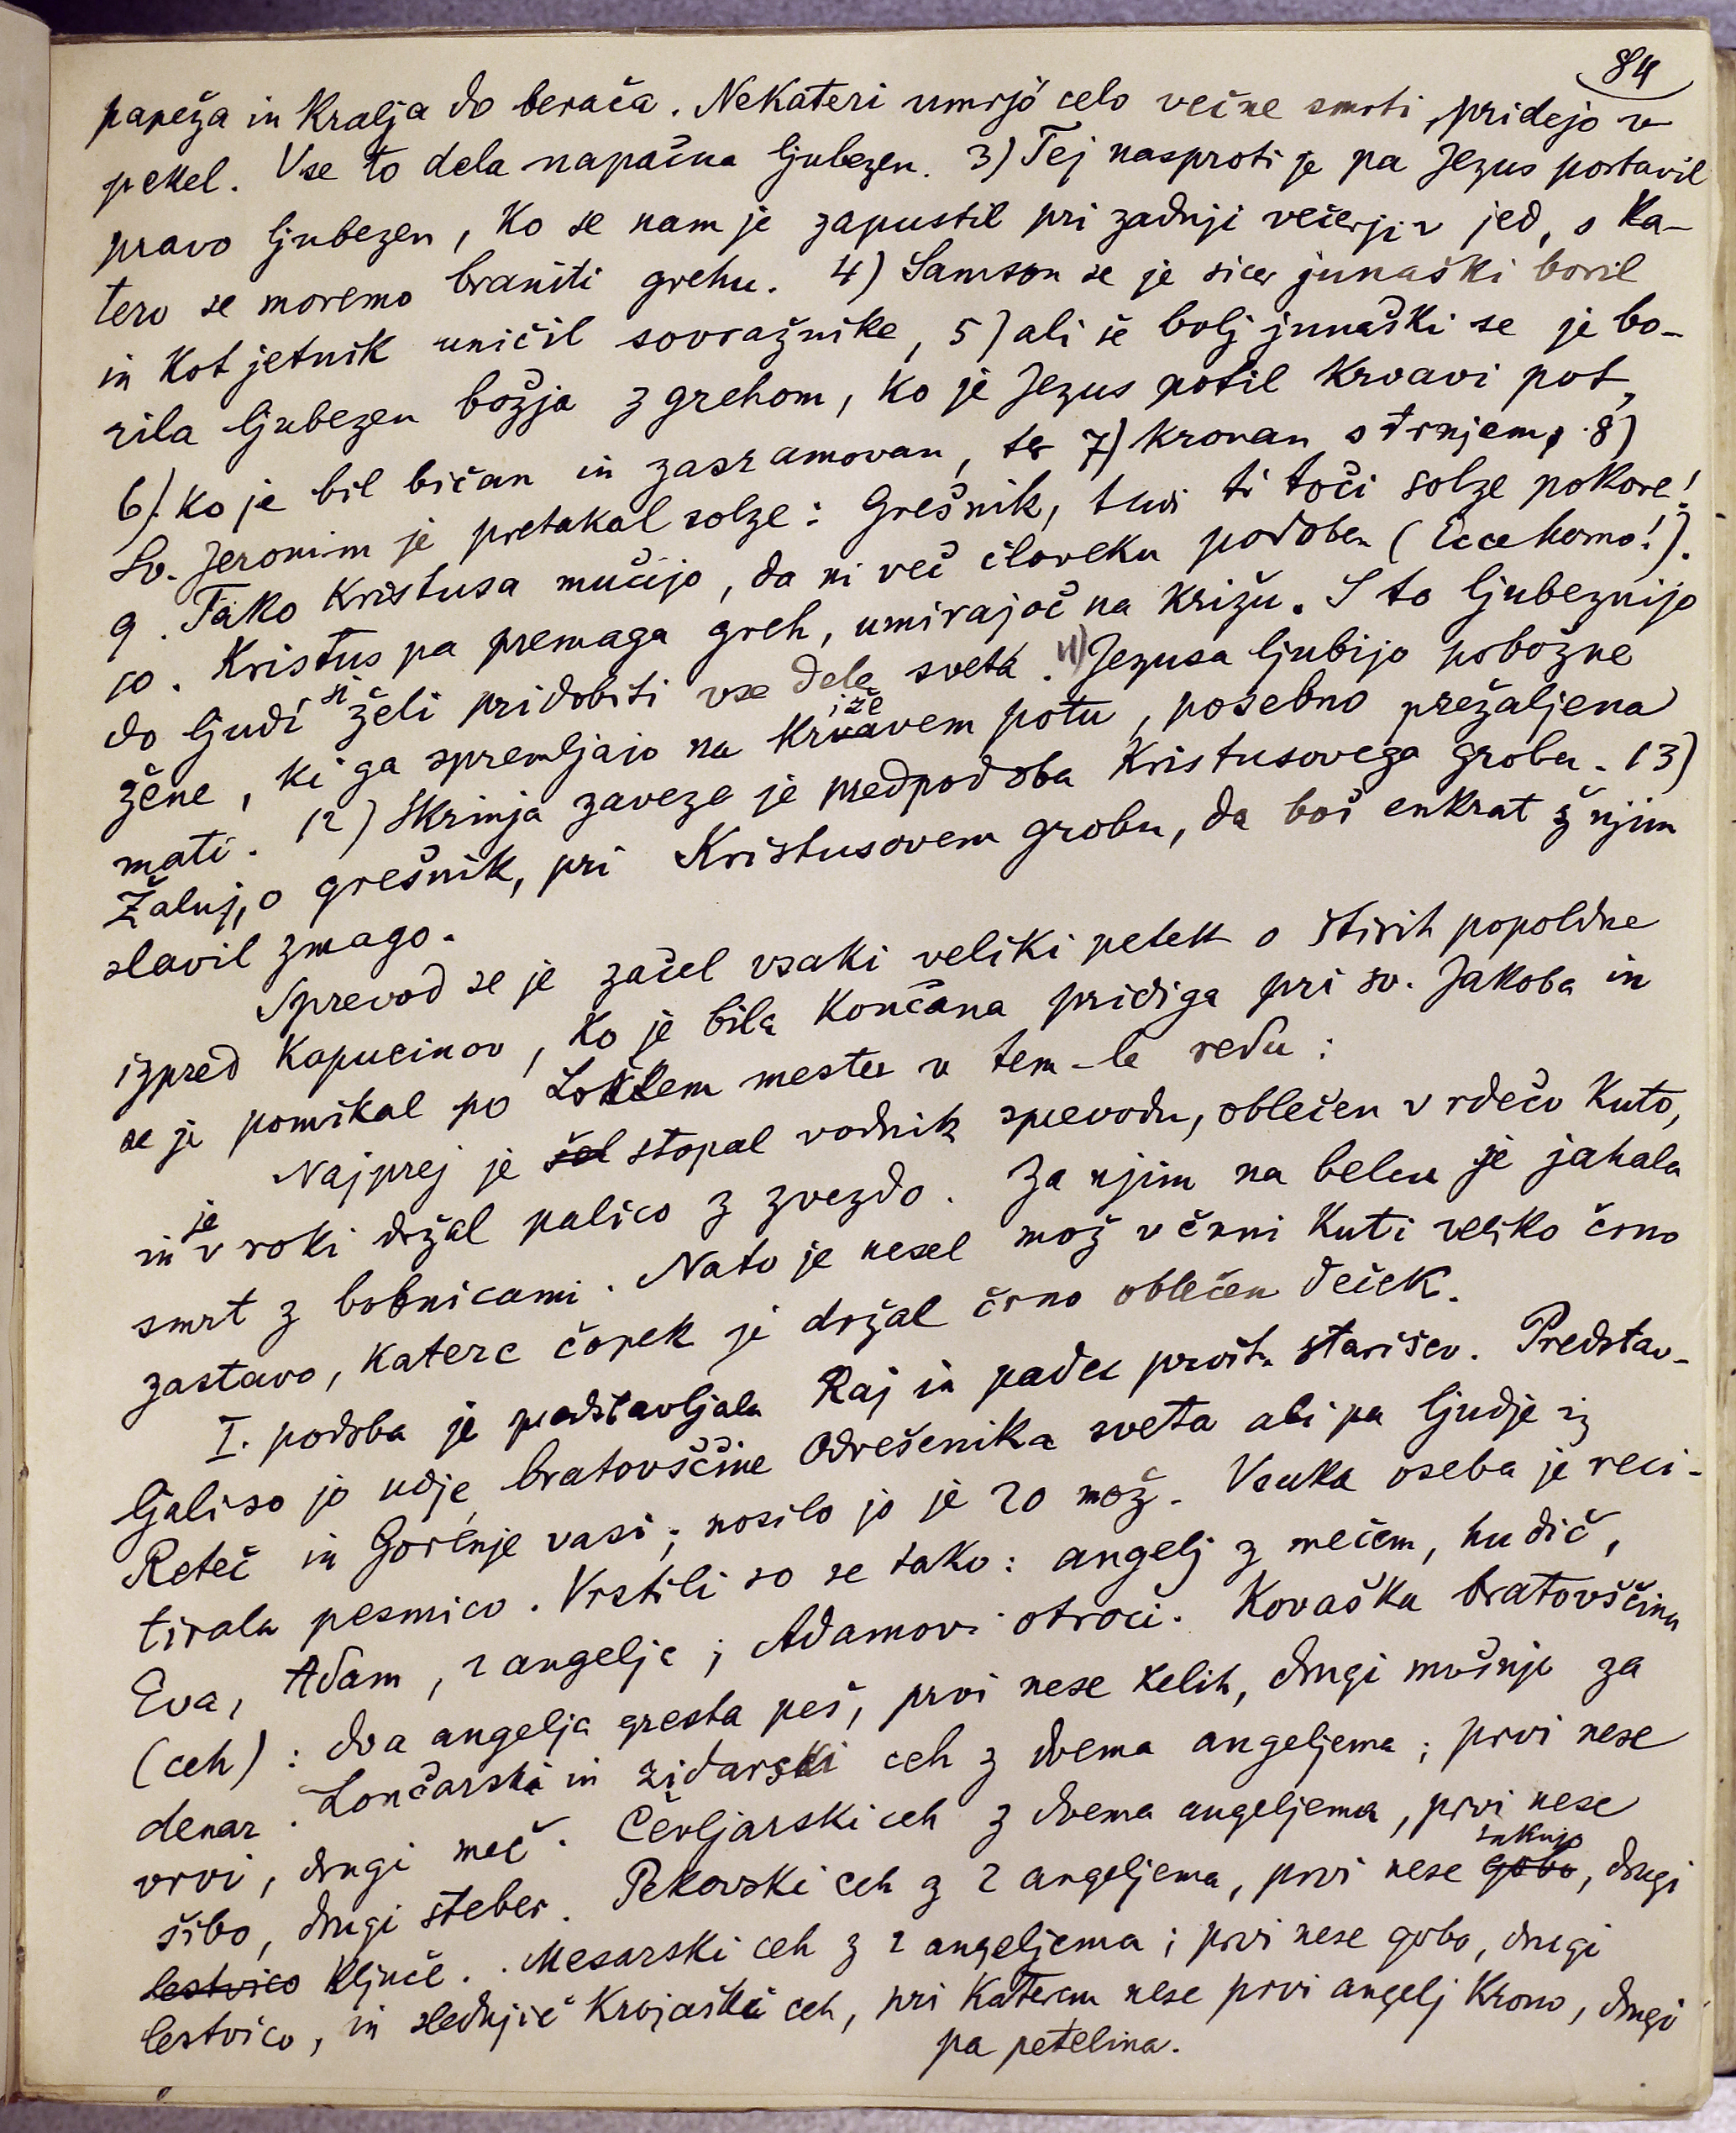 84
papeža in Kralja do berača. Nekateri umrjó celo večne smrti, pridejo v
pekel. Vse to dela napačna ljubezen. 3) Tej nasproti je pa Jezus postavil
pravo ljubezen, Ko se nam je zapustil pri zadnji večerji v jed, s Ka-
tero se moremo braniti grehu. 4) Samson se je sicer junaški boril
in Kot jetnik uničil sovražnike, 5) ali še bolj junaški se je bo-
rila ljubezen božja z grehom, Ko je Jezus potil Krvavi pot,
6). Ko je bil bičan in zasramovan, ter 7) Kronan s trnjem; 8)
Sv. Jeronim je pretakal solze: Grešnik, tudi ti toči solze pokore!
9. Tako Kristusa mučijo, da ni več človeku podoben (Ecce homo!).
10. Kristus pa premaga greh, umirajoč na Križu. S to ljubeznijo
do ljudi si želi pridobiti vse dele sveta. 11) Jezusa ljubijo pobožne
žene, Ki ga spremljajo na Križevem potu, posebno prežaljena
mati. 12) Skrinja zaveze je predpodoba Kristusovega groba. 13)
Žaluj, o grešnik, pri Kristusovem grobu, da boš enkrat ž njim
slavil zmago.
Sprevod se je začel vsaki veliki petek o štirih popoldne
izpred Kapucinov, Ko je bila Končana pridiga pri sv. Jakobu in
se je pomikal po Loškem mestu v tem-le redu:
Najprej je šel stopal vodnik sprevodu, oblečen v rdečo Kuto,
in je v roki držal palico z zvezdo. Za njim na belcu je jahala
smrt z bobnicami. Nato je nesel mož v črni Kuti veliko črno
zastavo, Katere čopek je držal črno oblečen deček.
I. podoba je predstavljala Raj in padec prvih starišev. Predstav-
ljali so jo udje bratovščine Odrešenika sveta ali pa ljudje iz
Reteč in Gorenje vasi; nosilo jo je 20 mož. Vsaka oseba je reci-
tirala pesmico. Vrstili so se tako: angelj z mečem, hudič,
Eva, Adam, 2 angelja; Adamovi otroci. Kovaška bratovščina
(ceh): dva angelja gresta peš, prvi nese kelih, drugi mošnjo za
denar. Lončarski in zidarski ceh z dvema angeljema; prvi nese
vrvi, drugi meč. Čevljarski ceh z dvema angeljema, prvi nese
šibo, drugi steber. Pekovski ceh z 2 angeljema, prvi nese gobo suknjo, drugi
lestvico Ključe. Mesarski ceh z 2 angeljema; prvi nese gobo, drugi
lestvico, in slednjič Krojaški ceh, pri Katerem nese prvi angelj Krono, drugi
pa petelina.